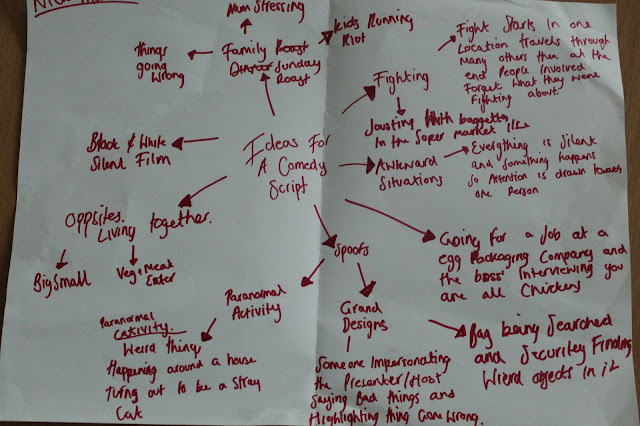 Mum Stressing
Kids Running
Riot
Things
going
wrong
Family Roast
Sunday
Roast
Fight Starts in one
Location travels through
Many others then at the
end People involved
Forget what they were
Fighting about.
Fighting
Jousting With baggettes
In the Super market
Black & White
Silent Film
Ideas For
A Comedy
Script
Awkward
Situations
Everything is Silent
and something happens
so Attention is drawn towards
one Person
Opposites
Living together.
Big Small
Veg + Meat
Eater
Spoofs
Going For a Job at a
egg Packaging Company and
the boss' Interviewing you
are all Chickens
Paranormal
Activity
Paranormal
Cativity.
Weird things
Happening around a house
Turng out to be a Stray
Cat
Grand
Designs
Someone Impersonating
the Presenter/Host
Saying Bad things and
Highlighting thing Gone Wrong.
Bag being Searched
and Security Finding
Wierd objects in it